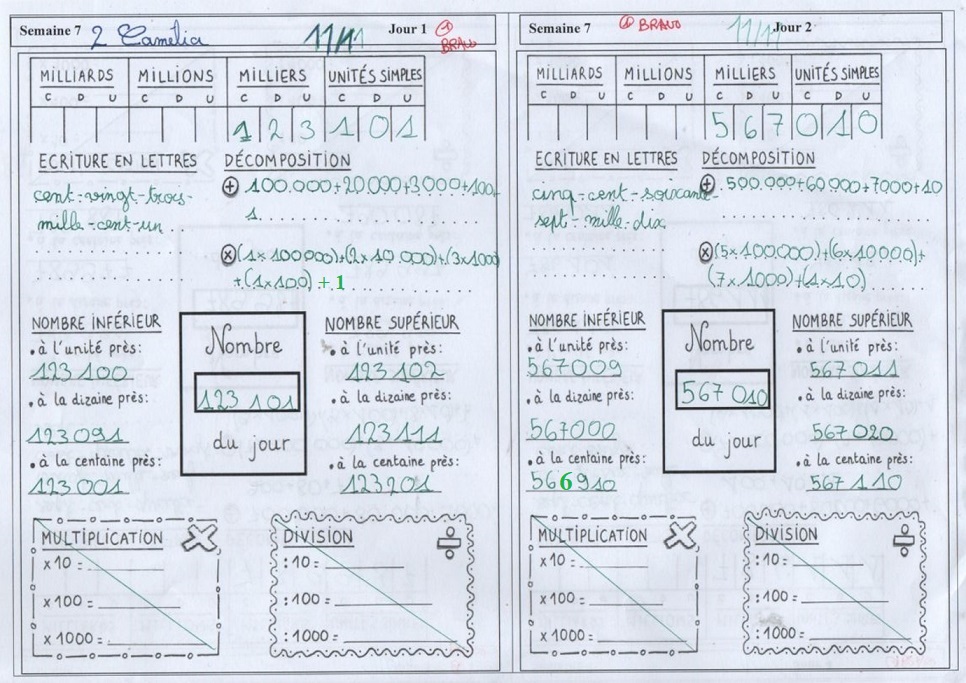 Semaine 7 2 Camélia 11/11 Jour 1 BRAVO
MILLIARDS MILLIONS MILLIERS UNITÉS SIMPLES
C D U C D U C D U C D U
1 2 3 1 0 1
ECRITURE EN LETTRES
cent-vingt-trois-
mille-cent-un
DÉCOMPOSITION
+ 100.000+20.000+3.000+100+
1
× (1×100000)+(2×10.000)+(3×1000)
+(1×100) + 1
NOMBRE INFÉRIEUR
• à l'unité près:
123 100
• à la dizaine près:
123 091
• à la centaine près:
123.001
Nombre
123 101
du jour
NOMBRE SUPÉRIEUR
• à l'unité près:
123 102
• à la dizaine près:
123 111
• à la centaine près:
123 201
MULTIPLICATION
x 10 =
x 100 =
x 1000 =
DIVISION
: 10 =
: 100 =
: 1000 =
Semaine 7 BRAVO 11/11 Jour 2
MILLIARDS MILLIONS MILLIERS UNITÉS SIMPLES
C D U C D U C D U C D U
5 6 7 0 1 0
ECRITURE EN LETTRES
cinq-cent-soixante-
sept-mille-dix
DÉCOMPOSITION
+ 500.000+60000+7000+10
× (5×100000)+(6×10000)+
(7×1000)+(1×10)
NOMBRE INFÉRIEUR
• à l'unité près:
567009
• à la dizaine près:
567000
• à la centaine près:
566910
Nombre
567 010
du jour
NOMBRE SUPÉRIEUR
• à l'unité près:
567 011
• à la dizaine près:
567 020
• à la centaine près:
567 110
MULTIPLICATION
x 10 =
x 100 =
x 1000 =
DIVISION
: 10 =
: 100 =
: 1000 =